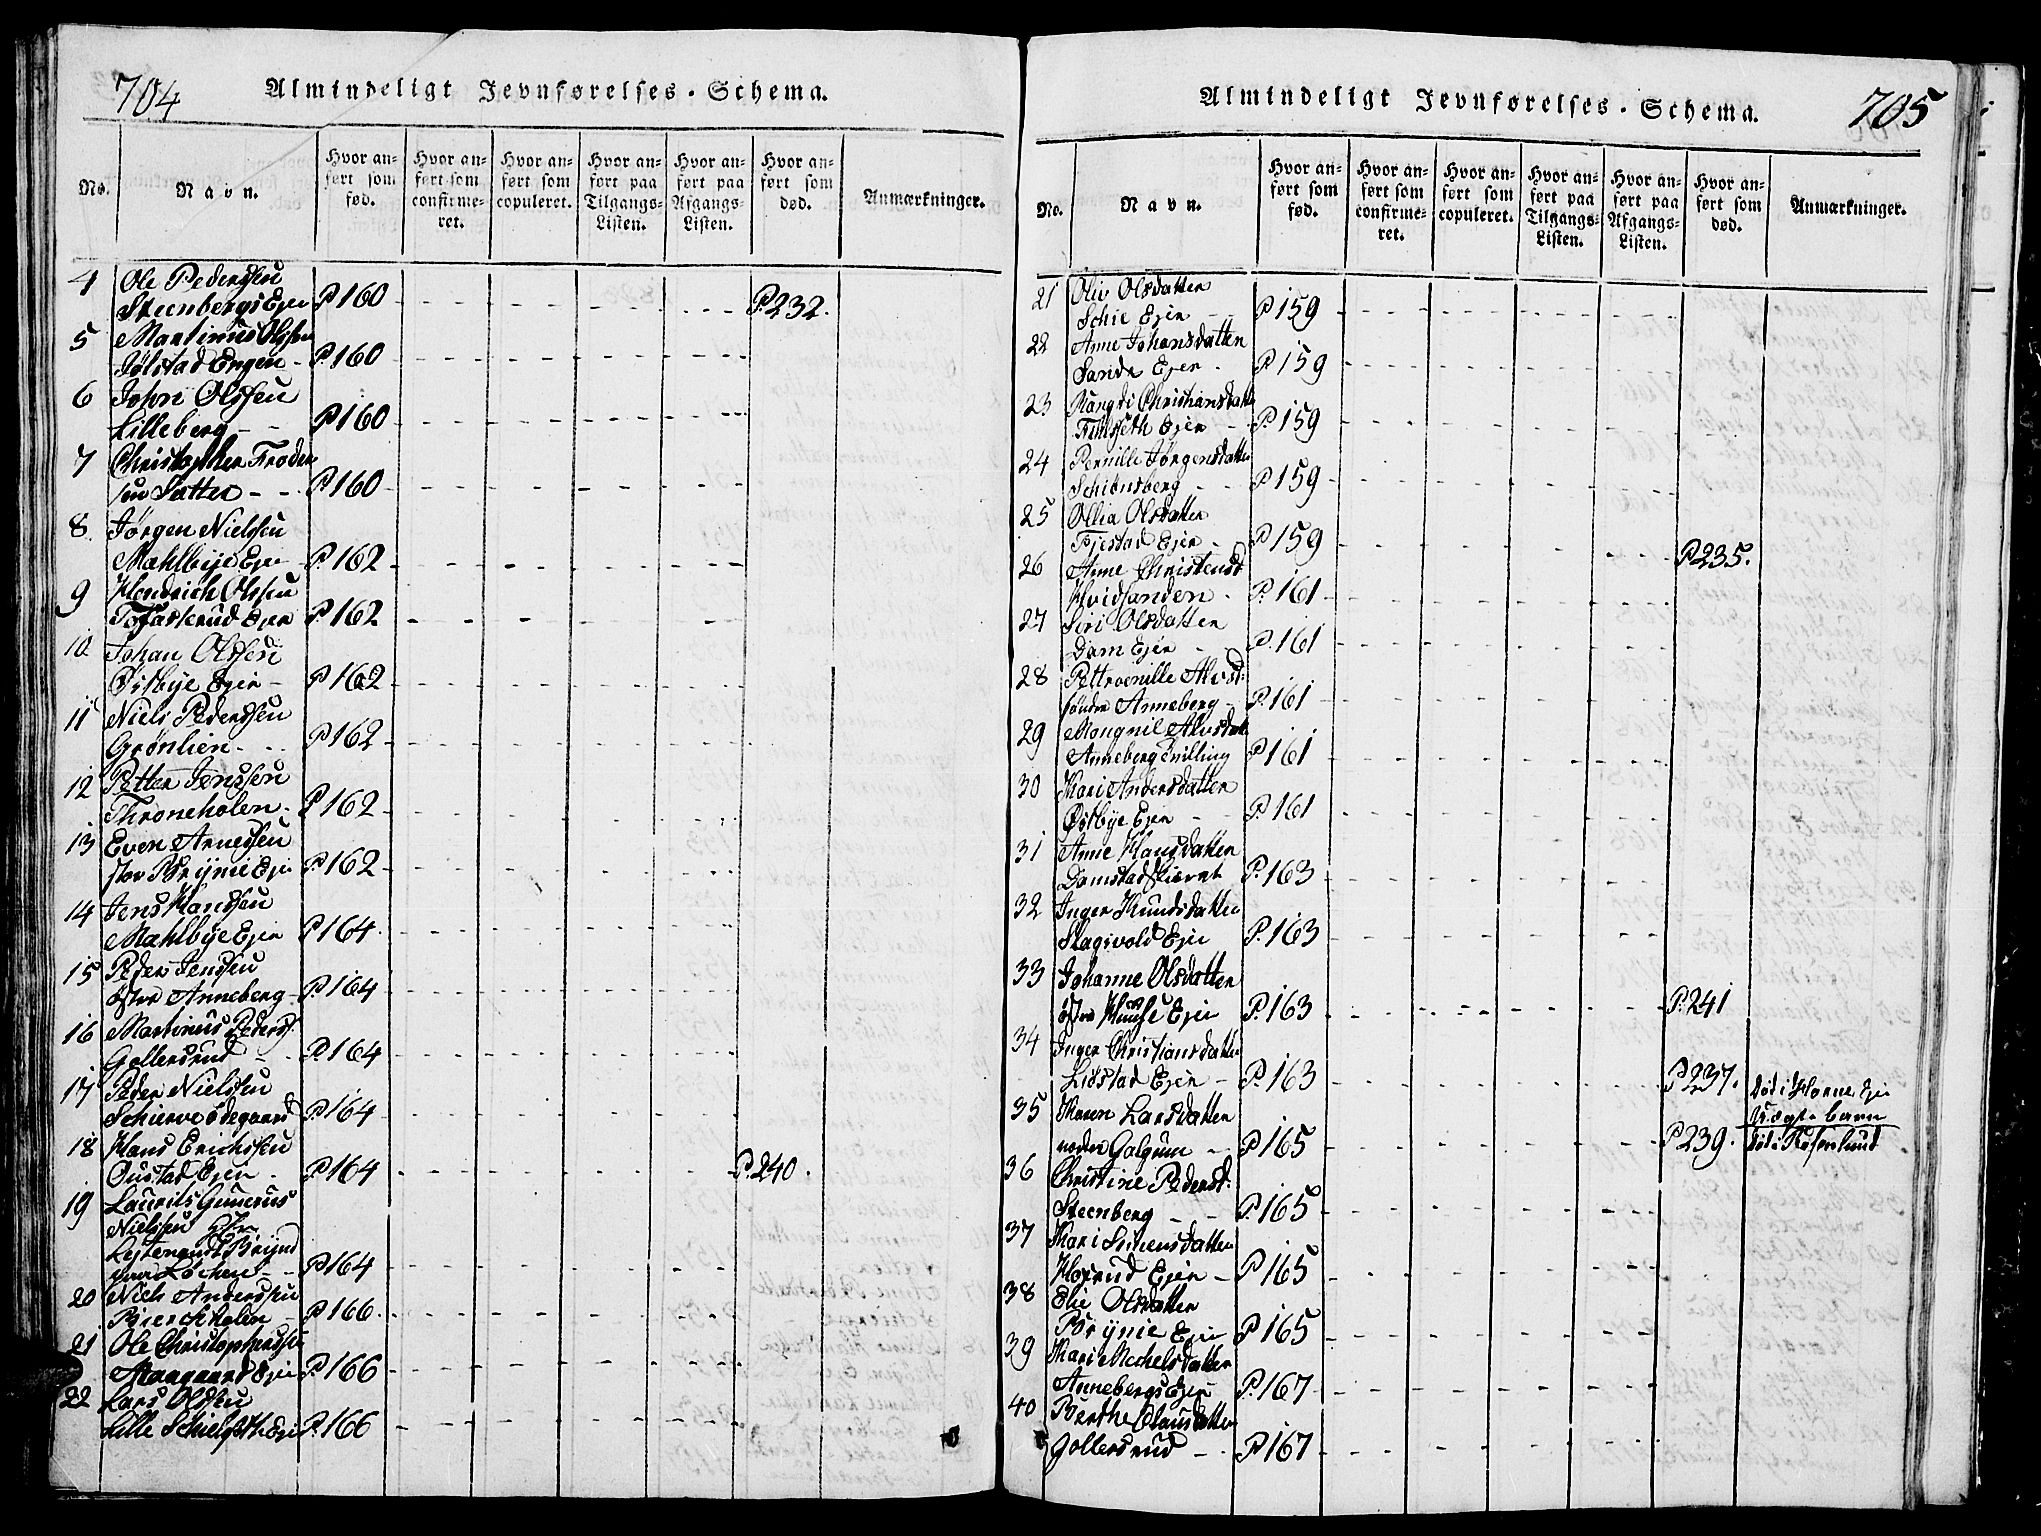 704
Almindeligt Jevnførelses-Schema.
No.
Navn.
Hvor anført som fød.
Hvor anført som confirmeret.
Hvor anført som copuleret.
Hvor anført paa Tilgangs-Listen.
Hvor anført paa Afgangs-Listen.
Hvor anført som død.
Anmærkninger.
4 Ole Pederssen
Steenbergs Ejer P 160 P. 232.
5 Martinus Olssen
Jølstad Engen P. 160
6 John Olssen
Lilleberg P 160
7 Christopher Froder
sen Sætter P 160
8. Jørgen Nielssen
Mæhlbye Eje P. 162
9 Hendrich Olssen
Tofasterud Ejer P 162
10 Johan Olssen
Østbye Ejer P 162
11 Niels Pederssen
Grønlien P 162
12 Petter Jenssen
Throneholen P 162
13 Even Arnessen
stor Brynie Eje P. 162
14 Jens Hanssen
Mæhlbye Ejer P 164
15 Peder Jenssen
østre Anneberg P. 164
16 Martinus Pederss.
Gollersrud P. 164
17 Peder Nielssen
Schierve ødegaard P. 164
18 Hans Erichssen
Oustad Ejer P. 164 P. 240.
19 Laurits Gunerus
Nielssen
Lejtenandt Brynd
paa Løchen P. 164
20 Niels Anderssen
Bierckholen P 166
21 Ole Christopherssen
Aaagaard Eje P. 166
22 Lars Olssen
Lille Schielseth Eje P. 166
Almindeligt Jevnførelses-Schema.
705
No.
Navn.
Hvor anført som fød.
Hvor anført som confirmeret.
Hvor anført som copuleret.
Hvor anført paa Tilgangs-Listen.
Hvor anført paa Afgangs-Listen.
Hvor anført som død.
Anmærkninger.
21 Oliv Olsdatter
Schie Ejer P 159
22 Anne Johansdatter
Ejer P 159
23 Rangdi Christiansdatte
Ejer P. 159
24 Pernille Jørgensdatter
Schiønsberg P 159
25 Ollia Olsdatter
Fjestad Ejer P 159 P 235.
26 Anne Christensd
Hvidsanden P. 161
27 Siri Olsdatter
Dam Ejer P. 161
28 Pettronille Alvsd:
søndre Anneberg P. 161
29 Mougnil Alvsdat
Anneberg Tvilling P. 161
30 Kari Andersdatter
Østbye Ejer P. 161
31 Anne Hansdatter
Domstad P. 163
32 Inger Knudsdatter
Slagsvold Eje P. 163
33 Johanne Olsdatter
østre Huuse Ejer P. 163 P. 241
34 Inger Christiansdatter
Liøstad Ejer P. 163 P 237. død i Horne Eje
ægte barn
35 Karen Larsdatter
nordre Galgum P. 165 P 239. død i Rosenlund
36 Christine Pedersd:
Steenberg P. 165
37 Kari Simensdatter
Horsrud Ejer P 165
38 Elie Olsdatter
Brynie Eje P 165
39 Kari Mechelsdatter
Annebergs Ejer P. 167
40 Berthe Clausdatter
Gollersrud P 167